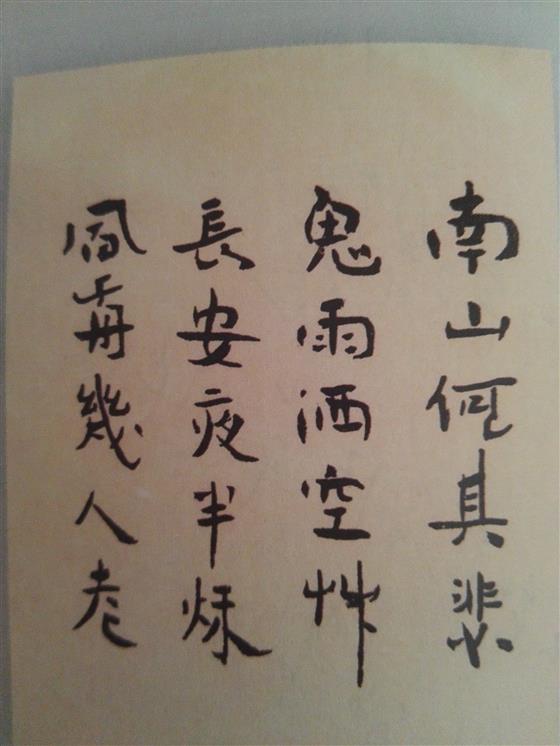 南山何其悲
鬼雨洒空艸
長安夜半秌
風前幾人老